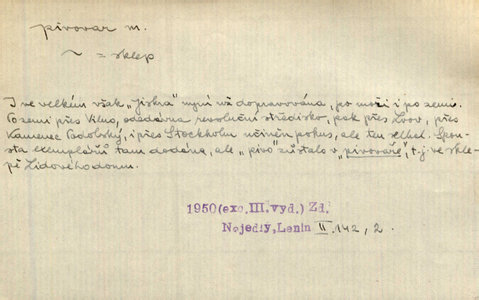 pivovar m.
~ = sklep
I ve velkém však „Jiskra" nyní už dopravována, po moři i po zemi.
Po zemi přes Vilno, odedávna revoluční středisko, pak přes Lvov, přes
Kamenec Podolský, i přes Stockholm učiněn pokus, ale ten selhal. Spou-
sta exemplářů tam dodána, ale „pivo" zůstalo v „pivováře", t.j. ve skle-
pě Lidového domu.
1950(exc.III.vyd.) Zd.
Nejedlý,Lenin II. 142, 2.